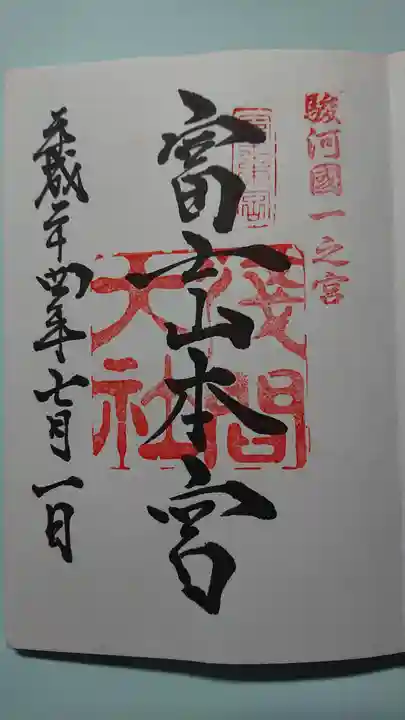 駿河國一之宮
富士山本宮
淺間
大社
平成二十四年七月一日